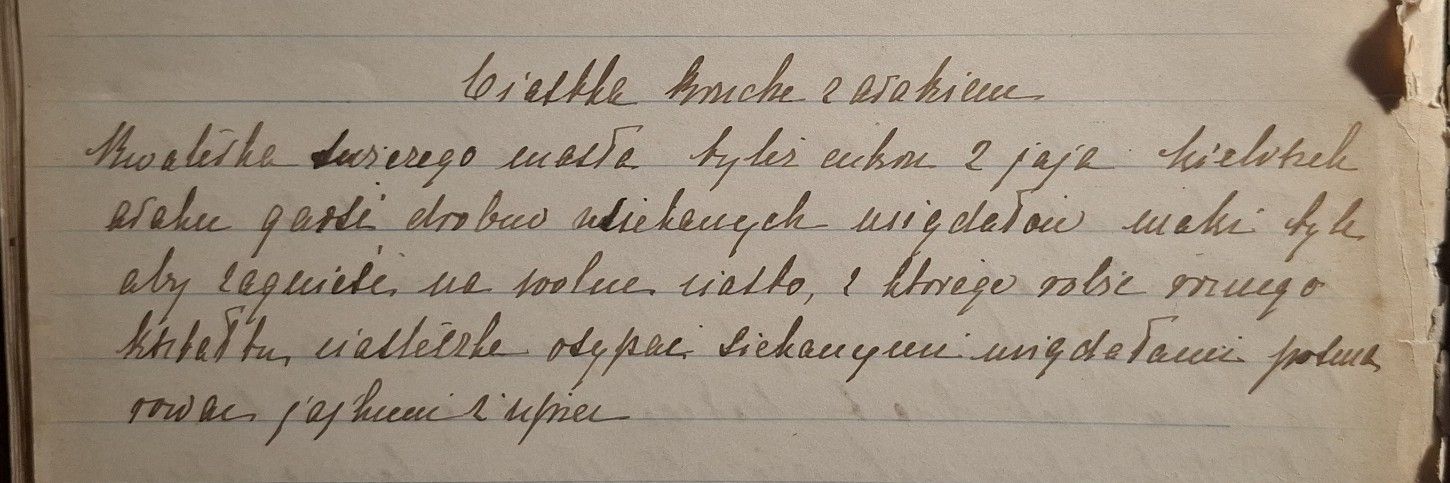 Ciastka kruche z arakiem
Kwaterka świerzego masła tyleż cukru 2 jaja kieliszek
araku garść drobno usiekanych migdałów mąki tyle
aby zagnieść na wolne ciasto, z którego robić różnego
kształtu ciasteczka osypać siekanymi migdałami posma
rować jajkami i upiec